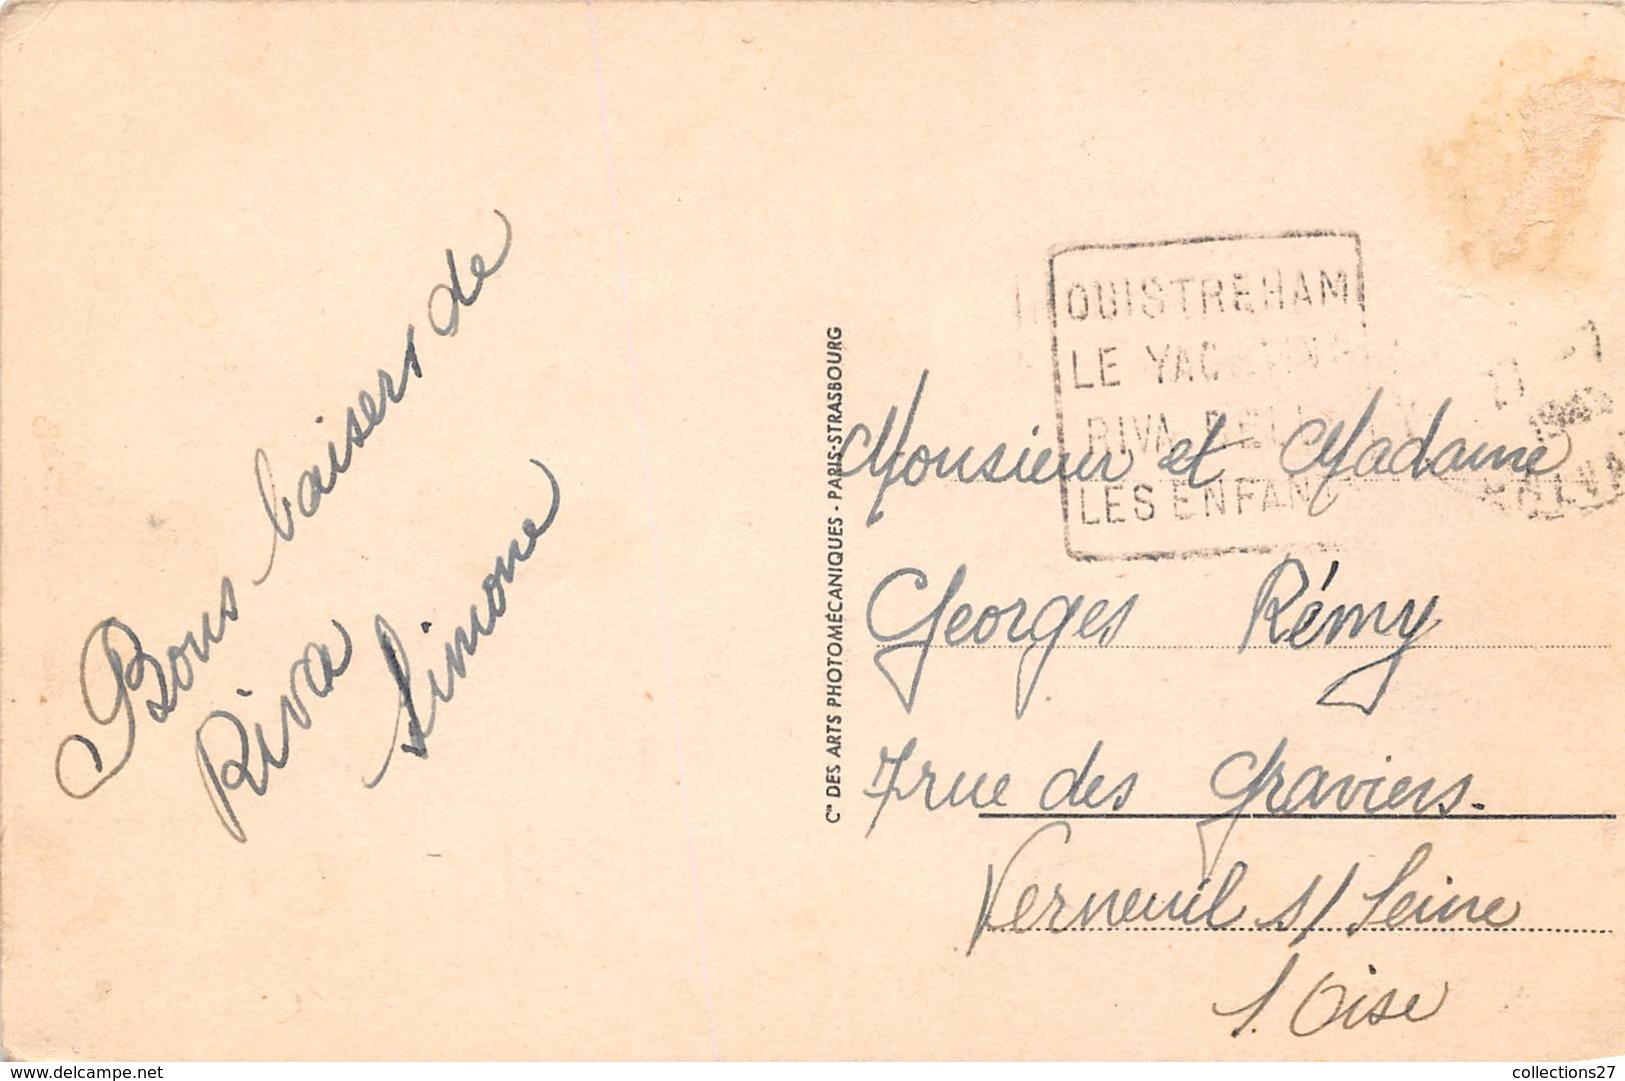 Bons baisers de
Riva
Simone
Cie DES ARTS PHOTOMÉCANIQUES - PARIS-STRASBOURG
OUISTREHAM
LE
RIVA
LES
Monsieur et Madame
Georges Rémy
7 rue des Graviers.
Verneuil s/ Seine
S. Oise
www.delcampe.net
collections27